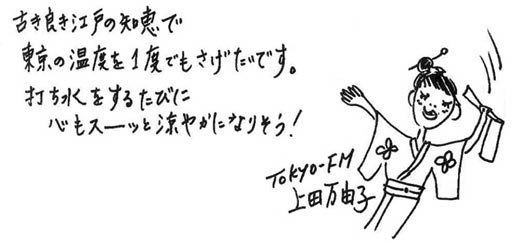 古き良き江戸の知恵で
東京の温度を1度でもさげたいです。
打ち水をするたびに
心もスーッと涼やかになりそう!
TOKYO-FM
上田万由子